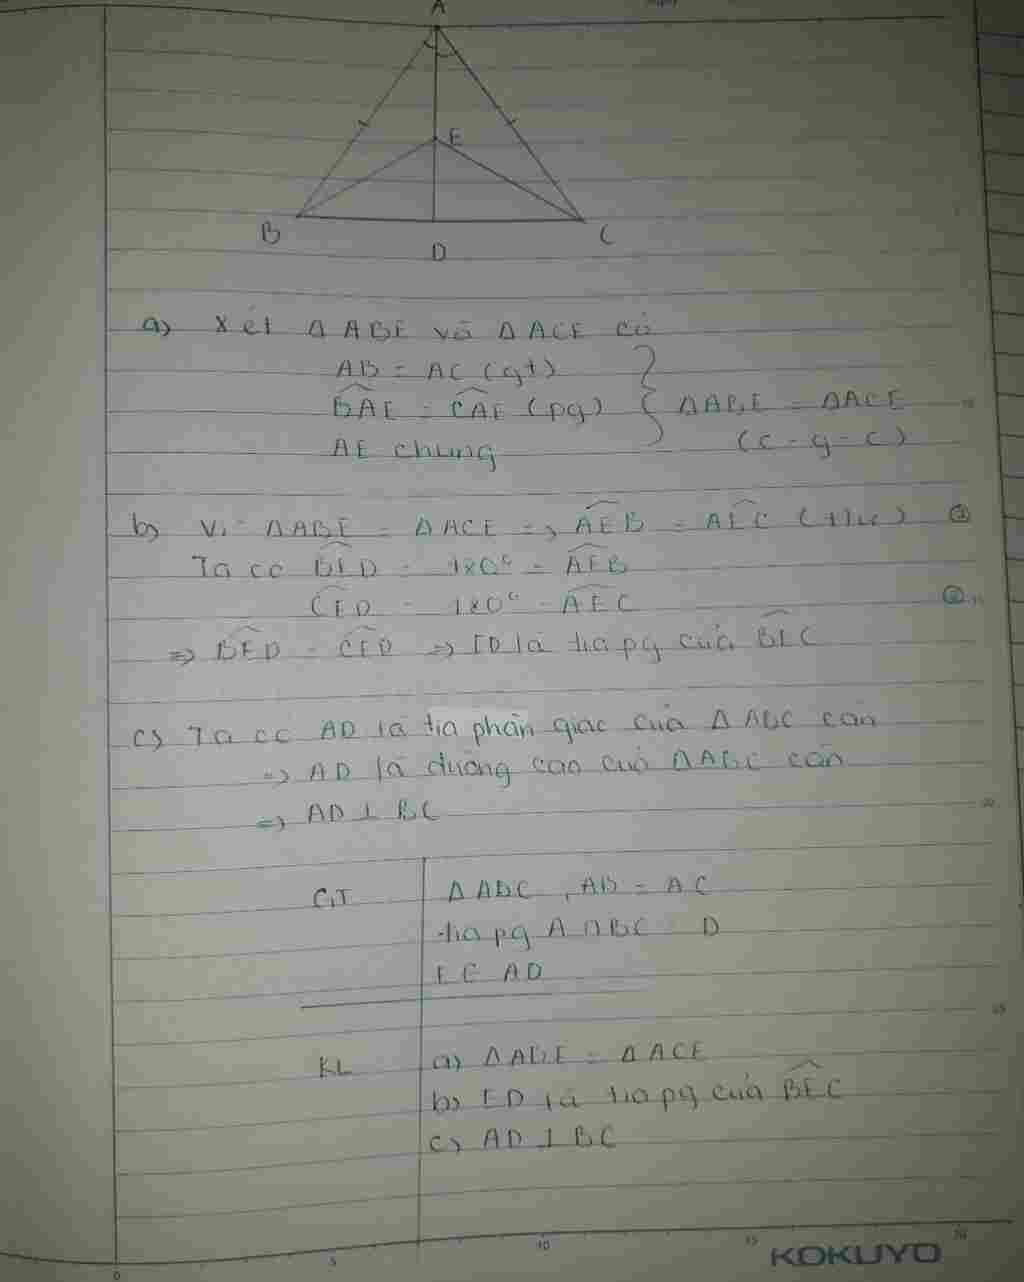 A
E
B
D
C
a) Xét Δ ABE và Δ ACE có
AB = AC (gt)
BAE = CAE (pg) } ΔABE = ΔACE
AE chung (c-g-c)
b) Vì ΔABE = ΔACE => AEB = AEC (ttư) ①
Ta có BED = 180° - AEB
CED = 180° - AEC ②
=> BED = CED => ED là tia pg của BEC
c) Ta có AD là tia phân giác của Δ ABC cân
=> AD là đường cao của ΔABC cân
=> AD ⊥ BC
GT Δ ABC, AB = AC
tia pg A ∩ BC D
E ∈ AD
KL a) ΔABE = ΔACE
b) ED là tia pg của BEC
c) AD ⊥ BC
0 5 10 15 20
KOKUYO